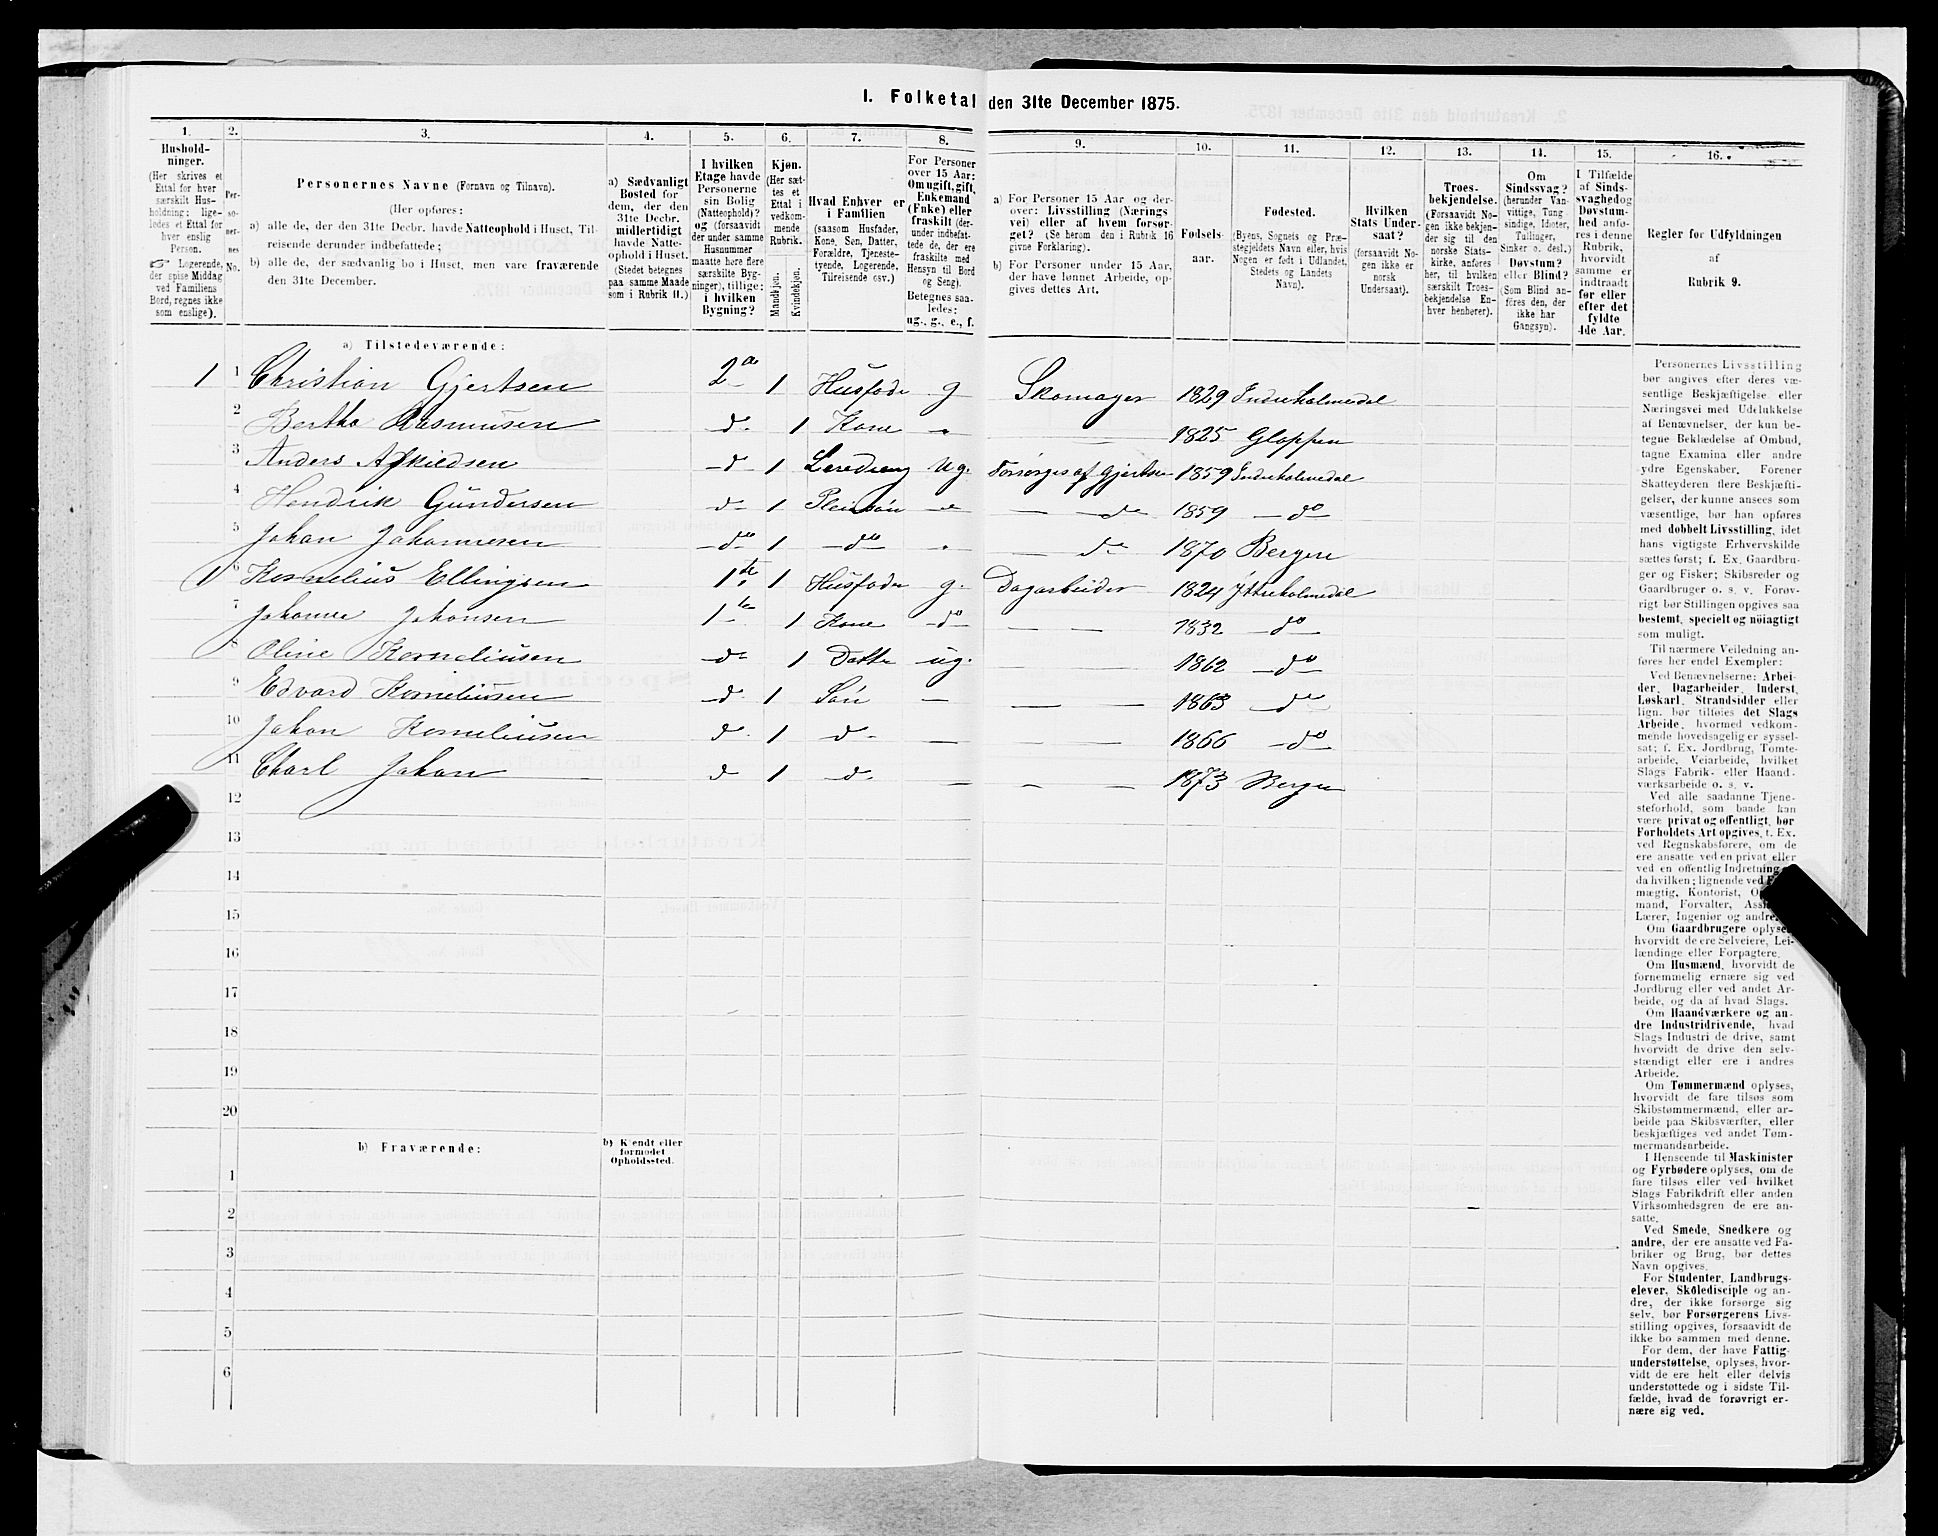 I. Folketal den 31te December 1875.
1. 2. 3. 4. 5. 6. 7. 8. 9. 10. 11. 12. 13. 14. 15. 16.
Hushold-
ninger.
(Her skrives et
Ettal for hver
særskilt Hus-
holdning; lige-
ledes et Ettal for
hver enslig
Person.
☞ Logerende,
der spise Middag
ved Familiens
Bord, regnes ikke
som enslige).
Per-
so-
ner-
nes
No.
Personernes Navne (Fornavn og Tilnavn).
(Her opføres:
a) alle de, der den 31te Decbr. havde Natteophold i Huset, Til-
reisende derunder indbefattede;
b) alle de, der sædvanlig bo i Huset, men vare fraværende
den 31te December.
a) Sædvanligt
Bosted for
dem, der den
31te Decbr.
midlertidigt
havde Natte-
ophold i Huset.
(Stedet betegnes
paa samme Maade
som i Rubrik 11.)
I hvilken
Etage havde
Personerne
sin Bolig
(Natteophold)?
og (forsaavidt
der under samme
Husnummer
maatte høre flere
særskilte Byg-
ninger), tillige:
i hvilken
Bygning?
Kjøn.
(Her sæt-
tes et
Ettal i
vedkom-
mende
Rubrik.
Mandkjøn.
Kvindekjøn.
Hvad Enhver er
i Familien
(saasom Husfader,
Kone, Søn, Datter,
Forældre, Tjeneste-
tyende, Logerende,
Tilreisende osv.)
For Personer
over 15 Aar:
Om ugift, gift,
Enkemand
(Enke) eller
fraskilt (der-
under indbefat-
tede de, der ere
fraskilte med
Hensyn til Bord
og Seng).
Betegnes saa-
ledes:
ug., g., e., f.
a) For Personer 15 Aar og der-
over: Livsstilling (Nærings
vei) eller af hvem forsør-
get? (Se herom den i Rubrik 16
givne Forklaring).
b) For Personer under 15 Aar,
der have lønnet Arbeide, op-
gives dettes Art.
Fødsels-
aar.
Fødested.
(Byens, Sognets og Præ-
stegjeldets Navn eller, hvis
Nogen er født i Udlandet,
Stedets og Landets
Navn).
Hvilken
Stats Under-
saat?
(forsaavidt No-
gen ikke er
norsk
Undersaat).
Troes-
bekjendelse.
(Forsaavidt No-
gen ikke bekjen-
der sig til den
norske Stats-
kirke, anføres
her, til hvilken
særskilt Troes-
bekjendelse En-
hver henhører).
Om
Sindssvag?
(herunder Van-
vittige, Tung
sindige, Idioter,
Tullinger,
Sinker o. desl.)
Døvstum?
eller Blind?
(Som Blind an-
føres den, der
ikke har
Gangsyn).
I Tilfælde
af Sinds-
svaghed og
Døvstum-
hed anfø-
res i denne
Rubrik,
hvorvidt
samme er
indtraadt
før eller
efter det
fyldte
4de Aar.
Regler for Udfyldningen
af
Rubrik 9.
a) Tilstedeværende:
1 1 Christian Gjertsen 2de 1 Husfader g Skomager 1829 Indreholmedal
2 Berthe Rasmusen d 1 Kone 1825 Gloppen
3 Anders Askildsen d 1 Læredreng ug. Forsørges af Gjertsen 1859 Indreholmedal
4 Hendrik Gundersen d 1 Pleiesøn do 1859 do
5 Johan Johannesen do 1 do do 1870 Bergen
1 6 Kornelius Ellingsen 1ste 1 Husfader g. Dagarbeider 1824 Yttreholmedal
7 Johanne Johansen 1te 1 Kone do 1832 do
8 Oline Korneliusen do 1 Datter ug. 1862 do
9 Edvard Korneliusen d. 1 Søn 1863 do
10 Johan Korneliusen d. 1 d. 1866 do
11 Charl Johan d 1 d. 1873 Bergen
12
13
14
15
16
17
18
19
20
b) Fraværende:
b) Kendt eller
formodet
Opholdssted.
1
2
3
4
5
6
Personernes Livsstilling
bør angives efter deres væ-
sentlige Beskjæftigelse eller
Næringsvei med Udelukkelse
af Benævnelser, der kun be-
tegne Beklædelse af Ombud,
tagne Examina eller andre
ydre Egenskaber. Forener
Skatteyderen flere Beskjæfti-
gelser, der kunne ansees som
væsentlige, bør han opføres
med dobbelt Livsstilling, idet
hans vigtigste Erhvervskilde
sættes først; f. Ex. Gaardbru-
ger og Fisker; Skibsreder og
Gaardbruger o. s. v. Forøv-
rigt bør Stillingen opgives saa
bestemt, specielt og nöiagtigt
som muligt.
Til nærmere Veiledning an-
føres her endel Exempler:
Ved Benævnelserne: Arbei-
der, Dagarbeider, Inderst,
Løskarl, Strandsidder eller
lign. bør tilføies det Slags
Arbeide, hvormed vedkom-
mende hovedsagelig er syssel-
sat; f. Ex. Jordbrug, Tomte-
arbeide, Veiarbeide, hvilket
Slags Fabrik- eller Haand-
værksarbeide o. s. v.
Ved alle saadanne Tjene-
steforhold, som baade kan
være privat og offentligt, bør
Forholdets Art opgives, t. Ex.
ved Regnskabsførere, om de
ere ansatte ved en privat eller
ved en offentlig Indretning
da hvilken; lignende ved
mægtig, Kontorist,
mand, Forvalter,
Lærer, Ingeniør og andre.
Om Gaardbrugere oplyses,
hvorvidt de ere Selveiere, Lei-
lændinge eller Forpagtere.
Om Husmænd, hvorvidt de
fornemmelig ernære sig ved
Jordbrug eller ved andet Ar-
beide, og da af hvad Slags.
Om Haandværkere og an-
dre Industridrivende, hvad
Slags Industri de drive, samt
hvorvidt de drive den selv-
stændigt eller ere i andres
Arbeide.
Om Tømmermænd oplyses,
hvorvidt de fare tilsøs som
Skibstømmermænd, eller ar-
beide paa Skibsværfter, eller
beskjæftiges ved andet Tøm-
mermandsarbeide.
I Henseende til Maskinister
og Fyrbødere oplyses, om de
fare tilsøs eller ved hvilket
Slags Fabrikdrift eller anden
Virksomhedsgren de ere an-
satte.
Ved Smede, Snedkere og
andre, der ere ansatte ved Fa-
briker og Brug, bør dettes
Navn opgives.
For Studenter, Landbrugs-
elever, Skoledisciple og an-
dre, der ikke forsørge sig
selv, bør Forsørgerens Livs-
stilling opgives, forsaavidt de
ikke bo sammen med denne.
For dem, der have Fattig-
understøttelse, oplyses, hvor-
vidt de ere helt eller delvis
understøttede og i sidste Til-
fælde, hvad de forøvrigt er-
nære sig ved.